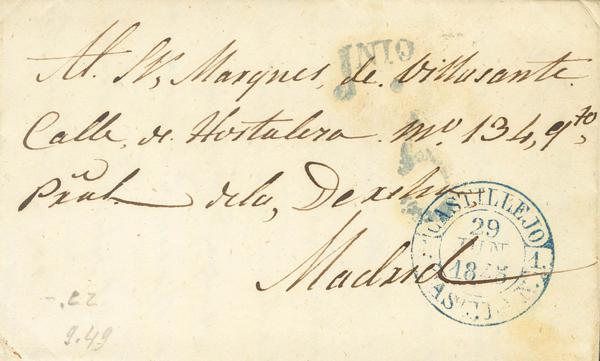 Al Sr. Marques, de Villasante.
Calle de Hortaleza nº 134, qto,
Pral. de la, Derecha
Madrid
CASTILLEJO
29
JUN
1845
1.
9.49